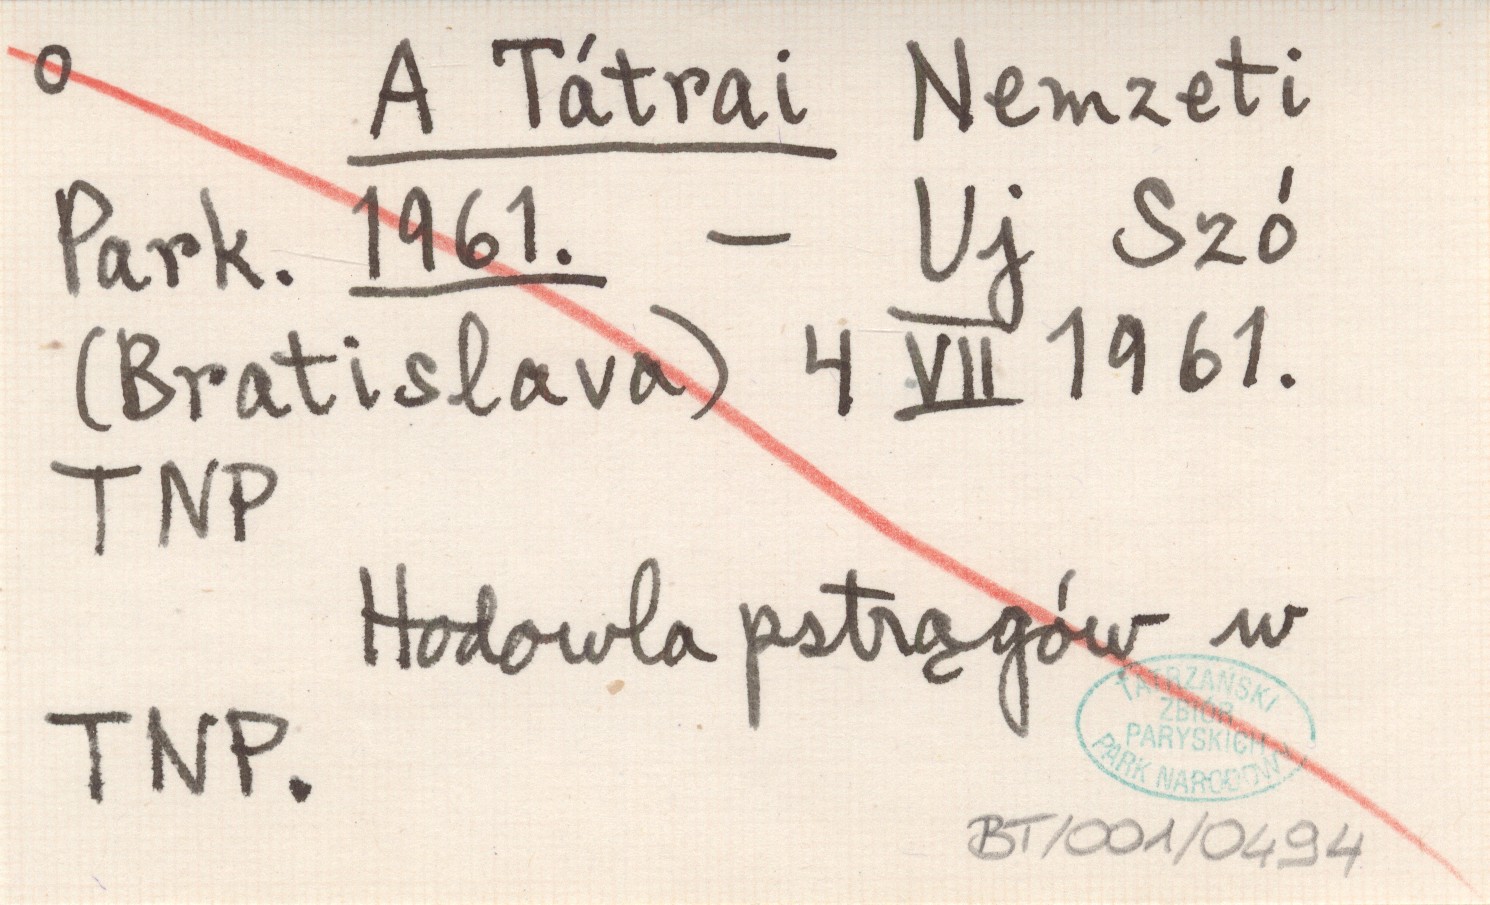 o A Tátrai Nemzeti
Park. 1961. – Uj Szó
(Bratislava) 4 VII 1961.
TNP
Hodowla pstrągów w
TNP.
TATRZAŃSKI
ZBIÓR
PARYSKICH
PARK NARODOWY
BT/001/0494